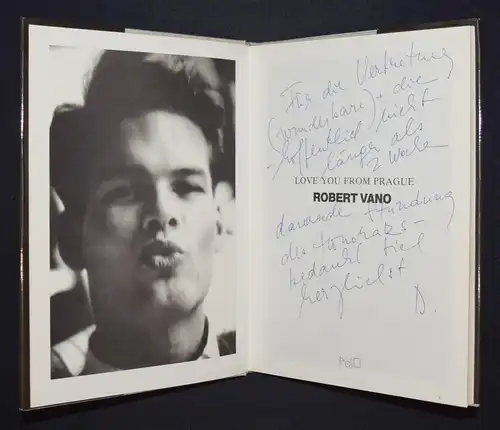 Für die Vertretung
(wunderbare) + die
hoffentlich nicht
länger als
2 Wochen
LOVE YOU FROM PRAGUE
ROBERT VANO
dauernde
des Honorars
bedankt sich
herzlichst
D.